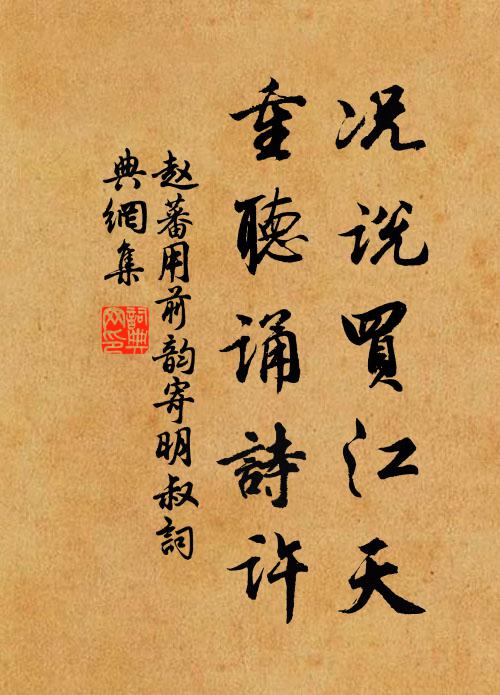 况说買江天
重聽诵詩许
赵蕃用前韵寄明叔詞
典網集
詞典網印